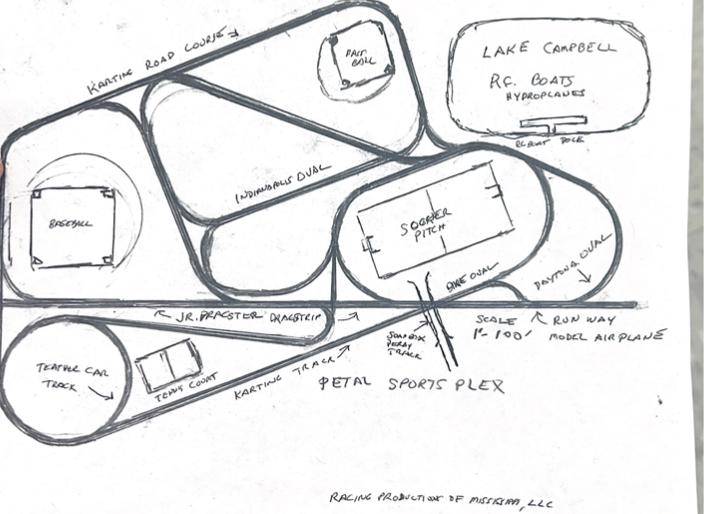 KARTING ROAD COURSE
FAST
BALL
LAKE CAMPBELL
R.C. BOATS
HYDROPLANES
RC BOAT DOCK
INDIANAPOLIS OVAL
BASEBALL
SOCCER
PITCH
BIKE OVAL
DAYTONA OVAL
JR. DRAGSTER DRAGSTRIP
SCALE
1"-100'
RUN WAY
MODEL AIRPLANE
SOAPBOX
DERBY
TRACK
TEATHER CAR
TRACK
TENNIS COURT
KARTING TRACK
PETAL SPORTS PLEX
RACING PRODUCTIONS OF MISSISSIPPI, LLC